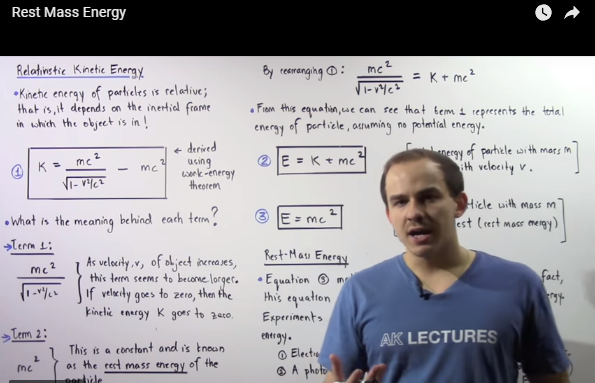 Rest Mass Energy
Relativistic Kinetic Energy
• Kinetic energy of particles is relative;
that is, it depends on the inertial frame
in which the object is in!
① K = mc² / √1-v²/c² - mc²
← derived
using
work-energy
theorem
• What is the meaning behind each term?
→ Term 1:
mc² / √1-v²/c²
As velocity, v, of object increases,
this term seems to become larger.
If velocity goes to zero, then the
kinetic energy K goes to zero.
→ Term 2:
mc²
This is a constant and is known
as the rest mass energy of the
particle
By rearranging ①: mc² / √1-v²/c² = K + mc²
• From this equation, we can see that term 1 represents the total
energy of particle, assuming no potential energy.
② E = K + mc²
energy of particle with mass m
with velocity v.
③ E = mc²
ticle with mass m
est (rest mass energy)
Rest-Mass Energy
• Equation ③ fact,
this equation
Experiments
energy.
① Electr
② A phot
AK LECTURES